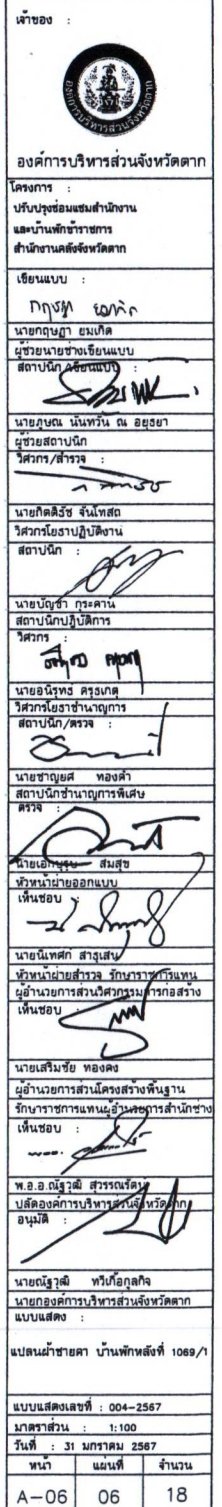 เจ้าของ :
องค์การบริหารส่วนจังหวัดตาก
องค์การบริหารส่วนจังหวัดตาก
โครงการ :
ปรับปรุงซ่อมแซมสำนักงาน
และบ้านพักข้าราชการ
สำนักงานคลังจังหวัดตาก
เขียนแบบ :
กฤษฎา ยมเกิด
นายกฤษฎา ยมเกิด
ผู้ช่วยนายช่างเขียนแบบ
สถาปนิก/เขียนแบบ :
นายภูษณ นันทวัน ณ อยุธยา
ผู้ช่วยสถาปนิก
วิศวกร/สำรวจ :
นายกิตติธัช จันโทสถ
วิศวกรโยธาปฏิบัติงาน
สถาปนิก :
นายบัญชา กุระคาน
สถาปนิกปฏิบัติการ
วิศวกร :
นายอนิรุทธ ครุธเกตุ
วิศวกรโยธาชำนาญการ
สถาปนิก/ตรวจ :
นายชาญยศ ทองคำ
สถาปนิกชำนาญการพิเศษ
ตรวจ :
สมสุข
หัวหน้าฝ่ายออกแบบ
เห็นชอบ :
นายนิเทศก์ สาธุเสน
หัวหน้าฝ่ายสำรวจ รักษาราชการแทน
ผู้อำนวยการส่วนวิศวกรรมการก่อสร้าง
เห็นชอบ :
นายเสริมชัย ทองคง
ผู้อำนวยการส่วนโครงสร้างพื้นฐาน
รักษาราชการแทนผู้อำนวยการสำนักช่าง
เห็นชอบ :
พ.อ.อ.ณัฐวุฒิ สุวรรณรัตน์
ปลัดองค์การบริหารส่วนจังหวัดตาก
อนุมัติ :
นายณัฐวุฒิ ทวีเกื้อกูลกิจ
นายกองค์การบริหารส่วนจังหวัดตาก
แบบแสดง :
แปลนฝ้าชายคา บ้านพักหลังที่ 1069/1
แบบแสดงเลขที่ : 004-2567
มาตราส่วน : 1:100
วันที่ : 31 มกราคม 2567
หน้า แผ่นที่ จำนวน
A-06 06 18